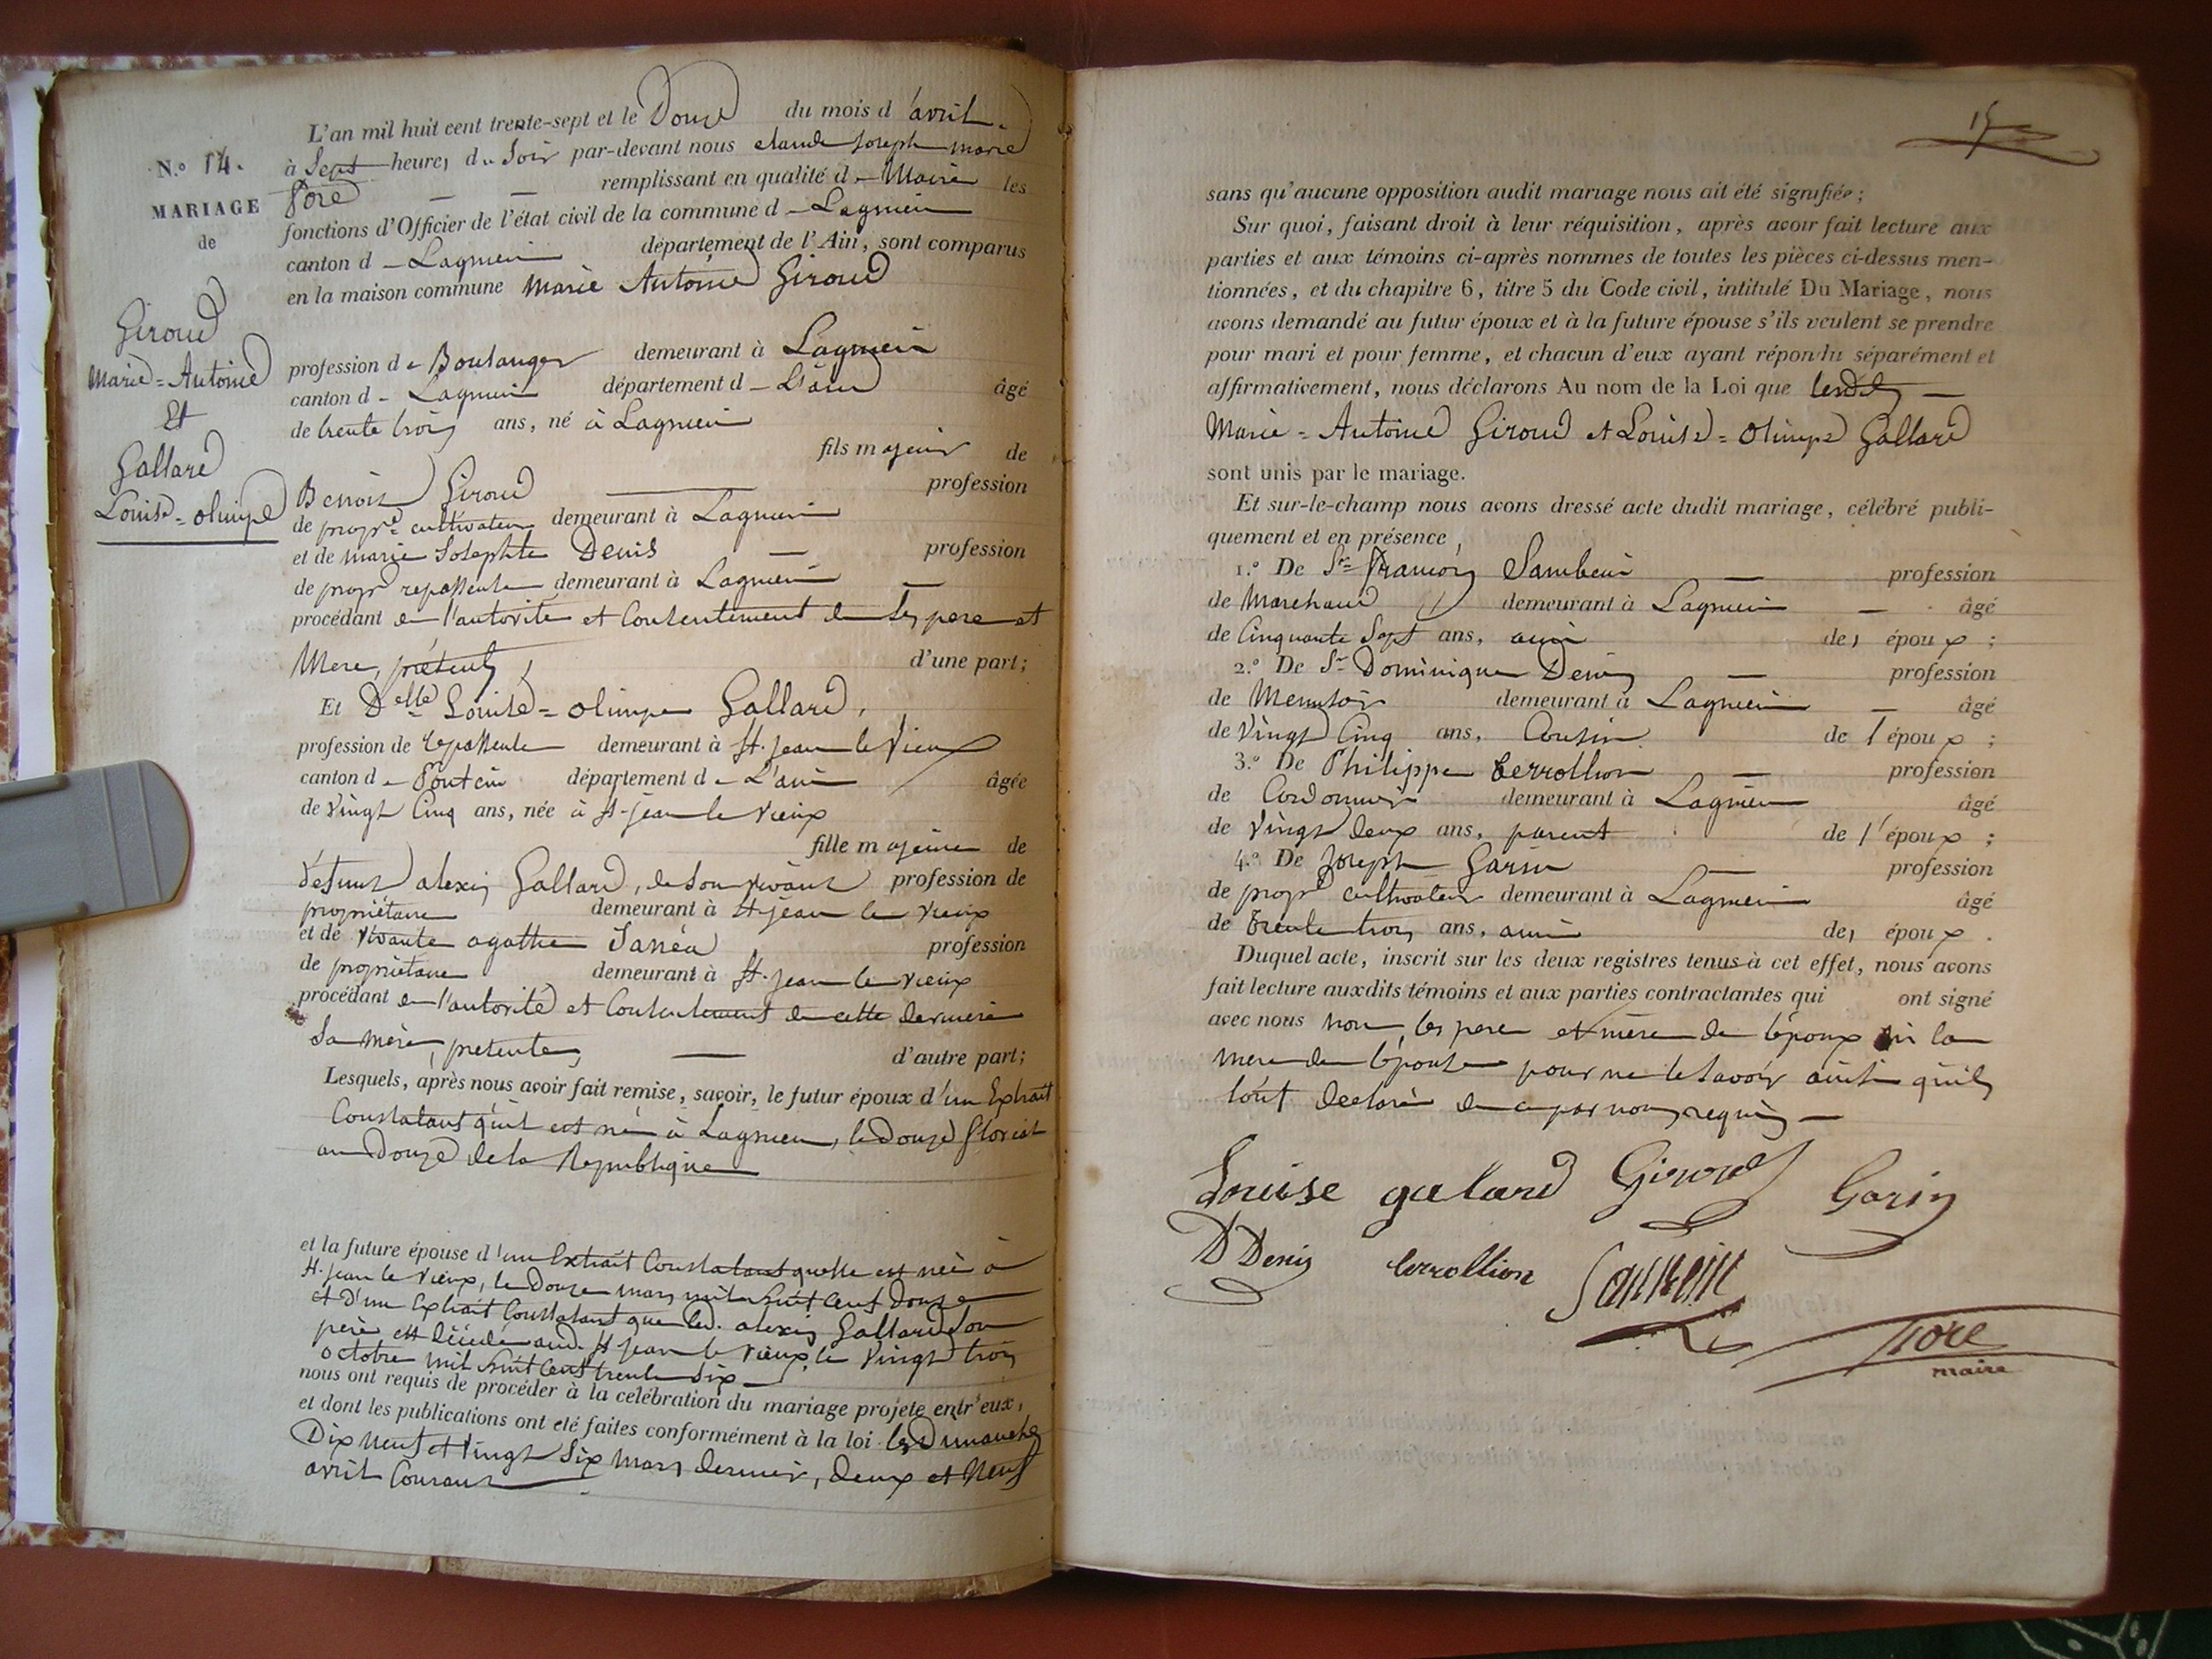 L'an mil huit cent trente-sept et le Douze du mois d'avril.
à Sept heures du Soir par-devant nous claude Joseph marie
remplissant en qualité de Maire les
fonctions d'Officier de l'état civil de la commune d Lagnieu
canton d Lagnieu département de l'Ain, sont comparus
en la maison commune Marie Antoine Giroud
N.º 14.
MARIAGE
de
Giroud
Marie=Antoine
Et
Gallard
Louise=olimpe
profession de Boulanger demeurant à Lagnieu
canton d Lagnieu département d L'ain âgé
de trente trois ans, né à Lagnieu
fils majeur de
Benoit Giroud profession
de propre cultivateur demeurant à Lagnieu
et de marie Josephte Denis profession
de propre repasseuse demeurant à Lagnieu
procédant de l'autorité et Consentement de ses pere et
Mere, présents, d'une part;
Et Delle Louise=olimpe Gallard,
profession de repasseuse demeurant à St. jean le Vieux
canton de Poncin département de L'ain âgée
de Vingt Cinq ans, née à St-jean le Vieux
fille majeure de
Défunt alexis Gallard, de son vivant profession de
propriétaire demeurant à St-jean le Vieux
et de vivante agathe profession
de propriétaire demeurant à St. jean le Vieux
procédant de l'autorité et Consentement de cette derniere
Sa mère, présente, d'autre part;
Lesquels, après nous avoir fait remise, savoir, le futur époux d'un Extrait
Constatant qu'il est né à Lagnieu, le Douze floréal
an Douze de la Republique
et la future épouse d'un Extrait Constatant quelle est née à
St. jean le Vieux, le Douze mars mil huit Cent Douze
et d'un Extrait Constatant que led. alexis Gallard son
pere est décédé aud. St jean le Vieux le Vingt trois
octobre mil huit Cent trente Six
nous ont requis de procéder à la celébration du mariage projeté entr'eux,
et dont les publications ont été faites conformément à la loi les Dimanches
Dix neuf et Vingt Six Mars dernier, deux et Neuf
avril Courant
15
sans qu'aucune opposition audit mariage nous ait été signifiée;
Sur quoi, faisant droit à leur réquisition, après avoir fait lecture aux
parties et aux témoins ci-après nommes de toutes les pièces ci-dessus men-
tionnées, et du chapitre 6, titre 5 du Code civil, intitulé Du Mariage, nous
avons demandé au futur époux et à la future épouse s'ils veulent se prendre
pour mari et pour femme, et chacun d'eux ayant répondu séparément et
affirmativement, nous déclarons Au nom de la Loi que lesdits
Marie=Antoine Giroud et Louise=olimpe Gallard
sont unis par le mariage.
Et sur-le-champ nous avons dressé acte dudit mariage, célébré publi-
quement et en présence,
1.º De Sr. François profession
de Marchand demeurant à Lagnieu âgé
de Cinquante Sept ans, ami des époux;
2.º De Sr. Dominique Denis profession
de Menuisier demeurant à Lagnieu âgé
de Vingt Cinq ans, Cousin de l'époux;
3.º De Philippe Cerrollion profession
de Cordonnier demeurant à Lagnieu âgé
de Vingt deux ans, parent de l'époux;
4.º De Joseph Garin profession
de propre cultivateur demeurant à Lagnieu âgé
de Trente trois ans, ami des époux.
Duquel acte, inscrit sur les deux registres tenus à cet effet, nous avons
fait lecture auxdits témoins et aux parties contractantes qui ont signé
avec nous non les pere et mère de l'époux ni la
mere de l'épouse pour ne le savoir ainsi qu'ils
l'ont declaré de ce par nous requis
Louise galard Giroud Garin
D Denis Cerrollion
maire